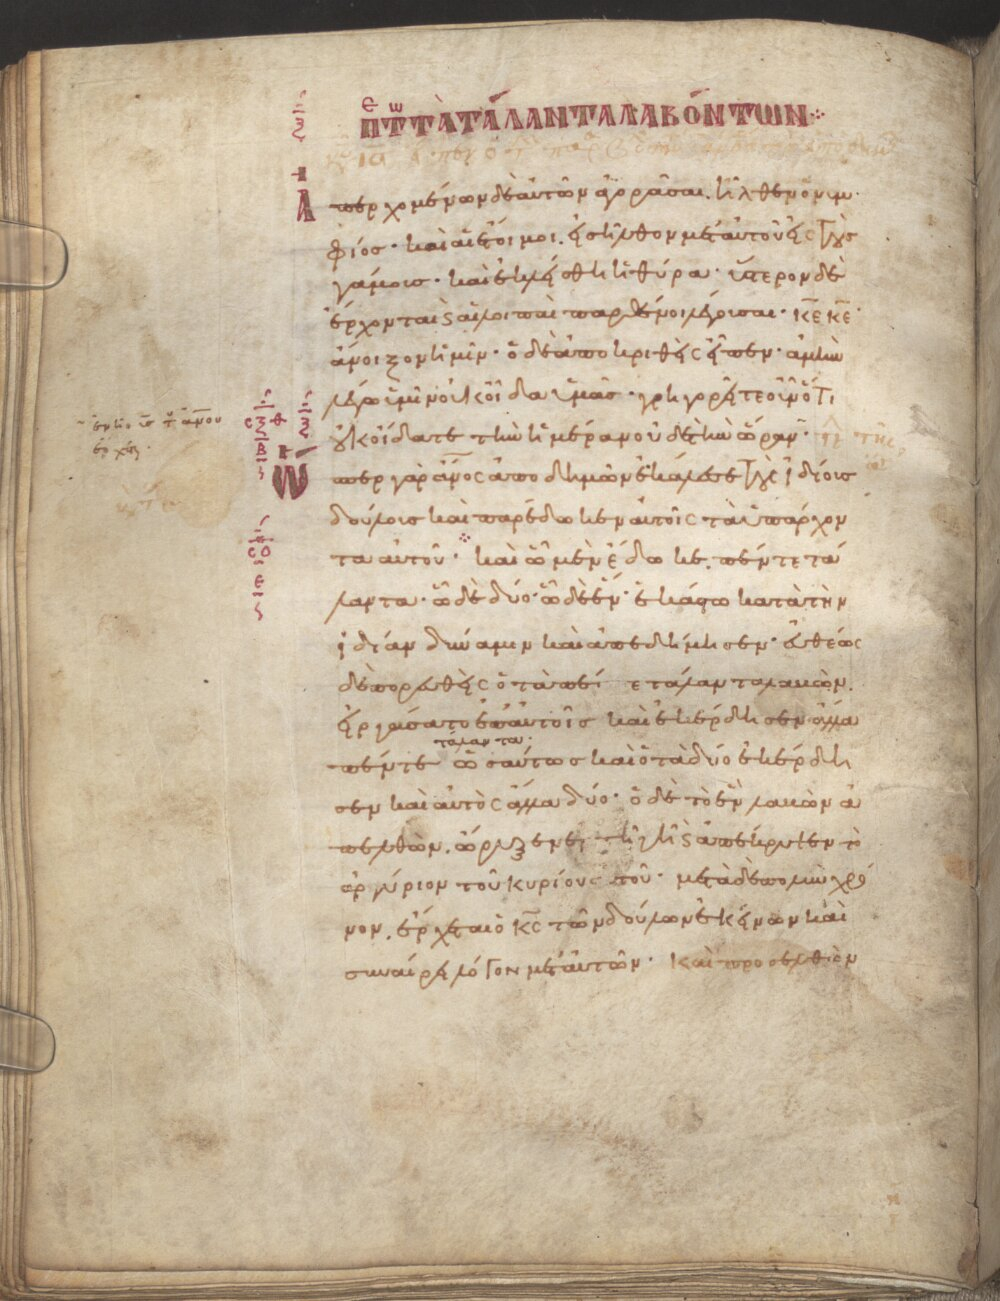 Π̅Τ̅ ΤΑ ΤΑΛΑΝΤΑ ΛΑΒΟΝΤΩΝ
Ἀ
περχομένων δὲ αὐτῶν ἀγοράσαι. ἦλθεν ὁ νυμ
φίος· καὶ αἱ ἕτοιμοι. εἰσῆλθον μετ' αὐτοῦ εἰς τοὺς
γάμους· καὶ ἐκλείσθη ἡ θύρα· ὕστερον δὲ
ἔρχονται καὶ αἱ λοιπαὶ παρθένοι λέγουσαι· κ̅ε̅ κ̅ε̅
ἄνοιξον ἡμῖν· ὁ δὲ ἀποκριθεὶς εἶπεν· ἀμὴν
λέγω ὑμῖν οὐκ οἶδα ὑμᾶς· γρηγορεῖτε οὖν ὅτι
οὐκ οἴδατε τὴν ἡμέραν οὐδὲ τὴν ὥραν·
Ὥ
σπερ γὰρ ἄν̅ο̅ς ἀποδημῶν ἐκάλεσε τοὺς ἰδίους
δούλους καὶ παρέδωκεν αὐτοῖς τὰ ὑπάρχον
τα αὐτοῦ· καὶ ᾧ μὲν ἔδωκε. πέντε τά
λαντα· ᾧ δὲ δύο· ᾧ δὲ ἕν· ἑκάστω κατὰ τὴν
ἰδίαν δύναμιν καὶ ἀπεδήμησεν· εὐθέως
δὲ πορευθεὶς ὁ τὰ πέντε τάλαντα λαβών.
εἰργάσατο ἐν αὐτοῖς καὶ ἐκέρδησεν ἄλλα
πέντε τάλαντα· ὡσαύτως καὶ ὁ τὰ δύο ἐκέρδη
σεν καὶ αὐτὸς ἄλλα δύο· ὁ δὲ τὸ ἓν λαβὼν ἀ
πελθὼν. ὤρυξεν ἐν τῇ γῇ καὶ ἀπέκρυψεν τὸ
ἀργύριον τοῦ κυρίου αὐτοῦ· μετὰ δὲ πολὺν χρό
νον. ἔρχεται ὁ κ̅ς̅ τῶν δούλων ἐκείνων καὶ
συναίρει λόγον μετ' αὐτῶν· καὶ προσελθὼν